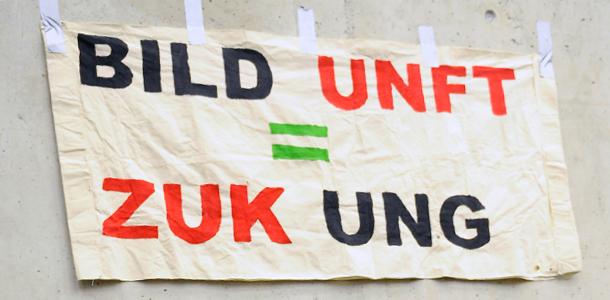 BILD UNFT
=
ZUK UNG